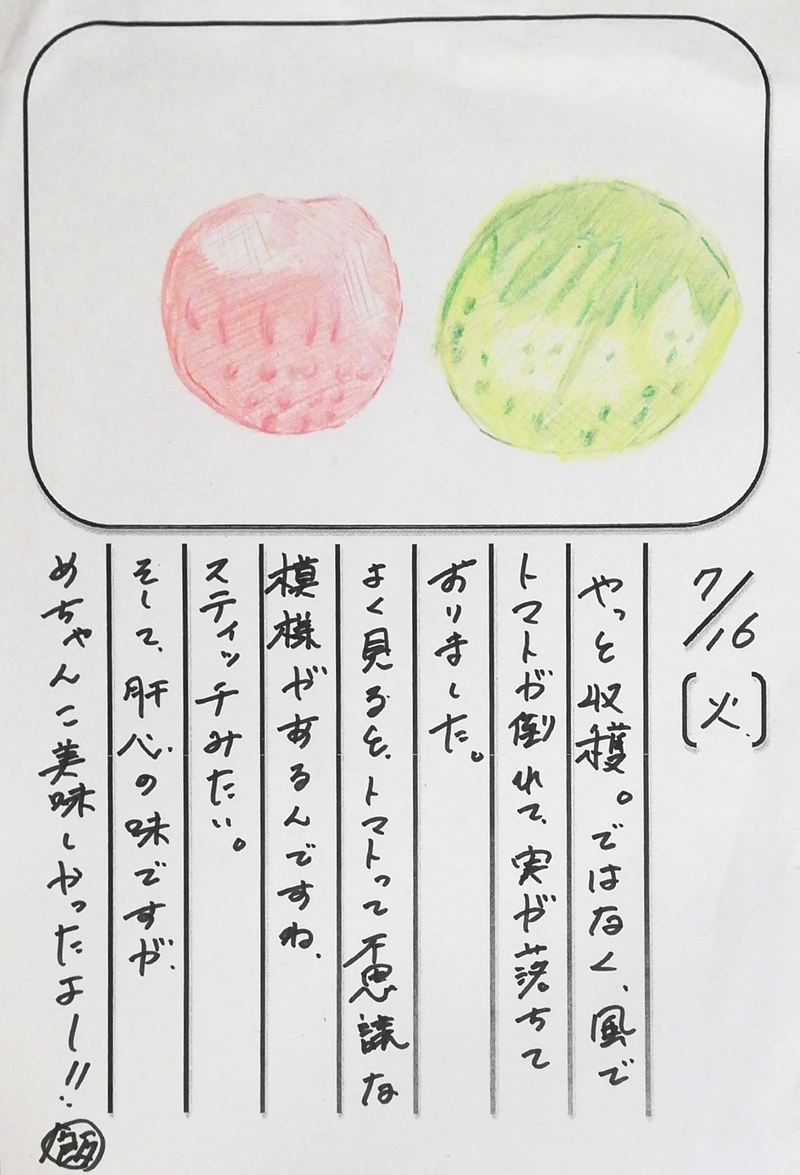 7/16
(火)
やっと収穫。ではなく、風で
トマトが倒れて、実が落ちて
おりました。
よく見ると、トマトって不思議な
模様があるんですね、
スティッチみたい。
そして、肝心の味ですが、
めちゃんこ美味しかったよー!!
飯